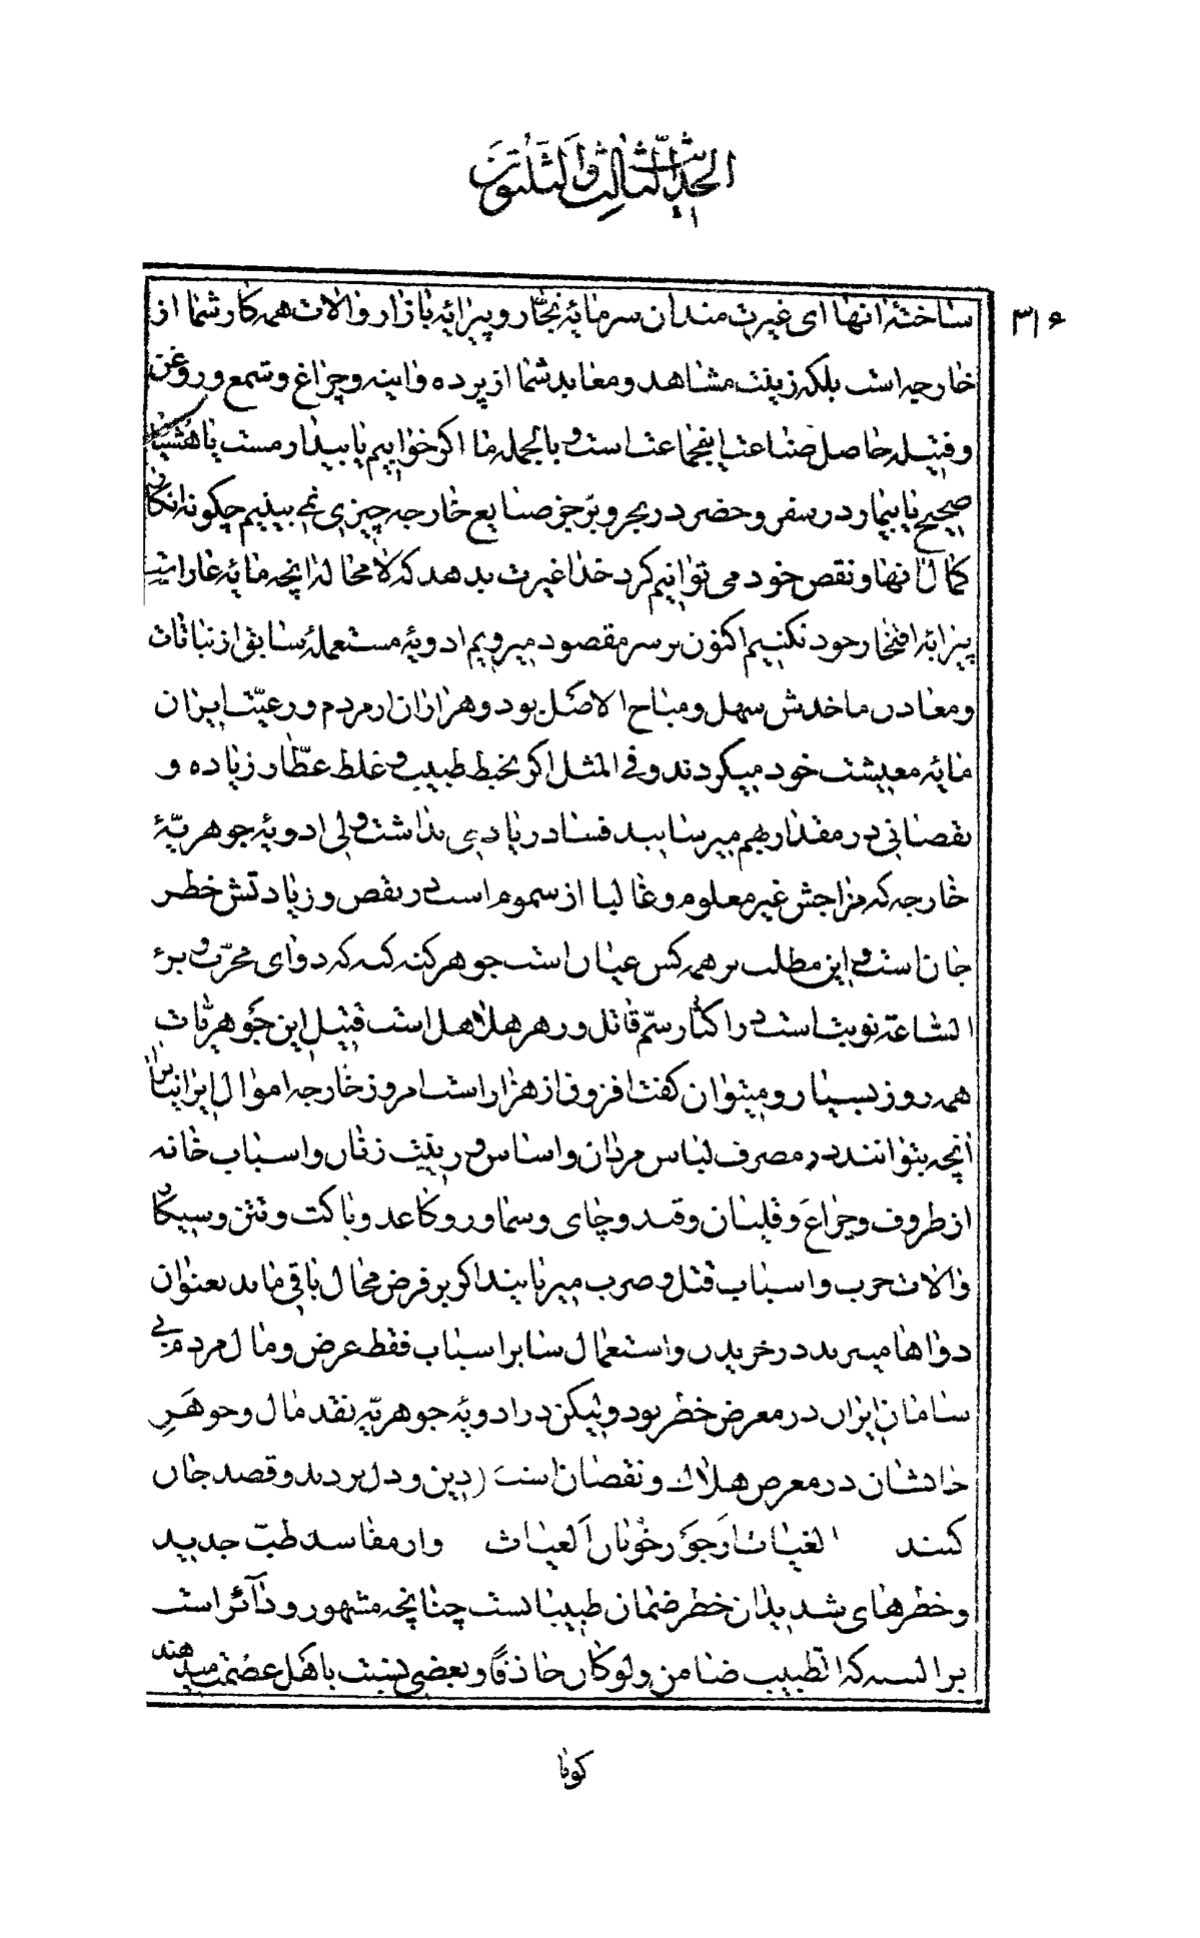 الحدیث الثالث والثلثون
۳۱۶
ساخته انها ای غیرت مندان سرمایه تجار و پیرایه بازار والات همه کار شما از
خارجه است بلکه زینت مشاهد و معابد شما از پرده واینه و چراغ و شمع و روغن
و فتیله حاصل صناعت اینجماعت است و بالجمله ما اکر خوابیم یا بیدار مست یا هشیار
صحیح یا بیمار در سفر و حضر در بحر و بر جز صنایع خارجه چیزی نمی بینیم چکونه انکار
کمال انها و نقص خود می توانیم کرد خدا غیرت بدهد که لا محاله انچه مایه عار است
پیرایه افتخار خود نکنیم اکنون بر سر مقصود میرویم ادویه مستعمله سابق از نباتات
و معادن ماخذش سهل و مباح الاصل بود و هزاران از مردم و رعیت ایران
مایه معیشت خود میکردند و فی المثل اکر بخبط طبیب و غلط عطار زیاده و
نقصانی در مقدار بهم میرسانید فساد زیادی نداشت ولی ادویه جوهریهٔ
خارجه که مزاجش غیر معلوم و غالبا از سموم است در نقص و زیادتش خطر
جان است و این مطلب بر همه کس عیان است جوهر کنه کنه که دوای مجرب و برء
الساعة نوبت است در اکثار سم قاتل و زهر هلاهل است قتیل این جوهریات
همه روز بسیار و میتوان کفت افزون از هزار است امروز خارجه اموال ایرانیانرا
انچه بتوانند در مصرف لباس مردان و اساس و زینت زنان و اسباب خانه
از ظروف و چراغ و قلیان و قند و چای و سماور و کاغذ و پاکت و تتن و سیکار
والات حرب و اسباب قتل و ضرب میربایند اکر بر فرض محال باقی ماند بعنوان
دواها میبرند در خریدن و استعمال سایر اسباب فقط عرض و مال مردم بی
سامان ایران در معرض خطر بود ولیکن در ادویه جوهریه نقد مال و جوهر
جانشان در معرض هلاك و نقصان است (دین و دل بردند و قصد جان
کنند الغیاث از جور خوبان الغیاث واز مفاسد طب جدید
و خطرهای شدید ان خطر ضمان طبیب است چنانچه مشهور و دائر است
بر السنه که الطبیب ضامن ولو کان حاذقا و بعضی نسبت باهل عصمت میدهند
کویا